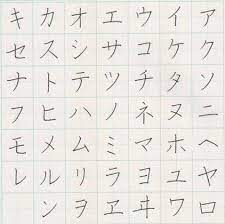 アイウエオカキ
クケコサシスセ
ソタチツテトナ
ニヌネノハヒフ
ヘホマミムメモ
ヤユヨラリルレ
ロワヰヱヲン